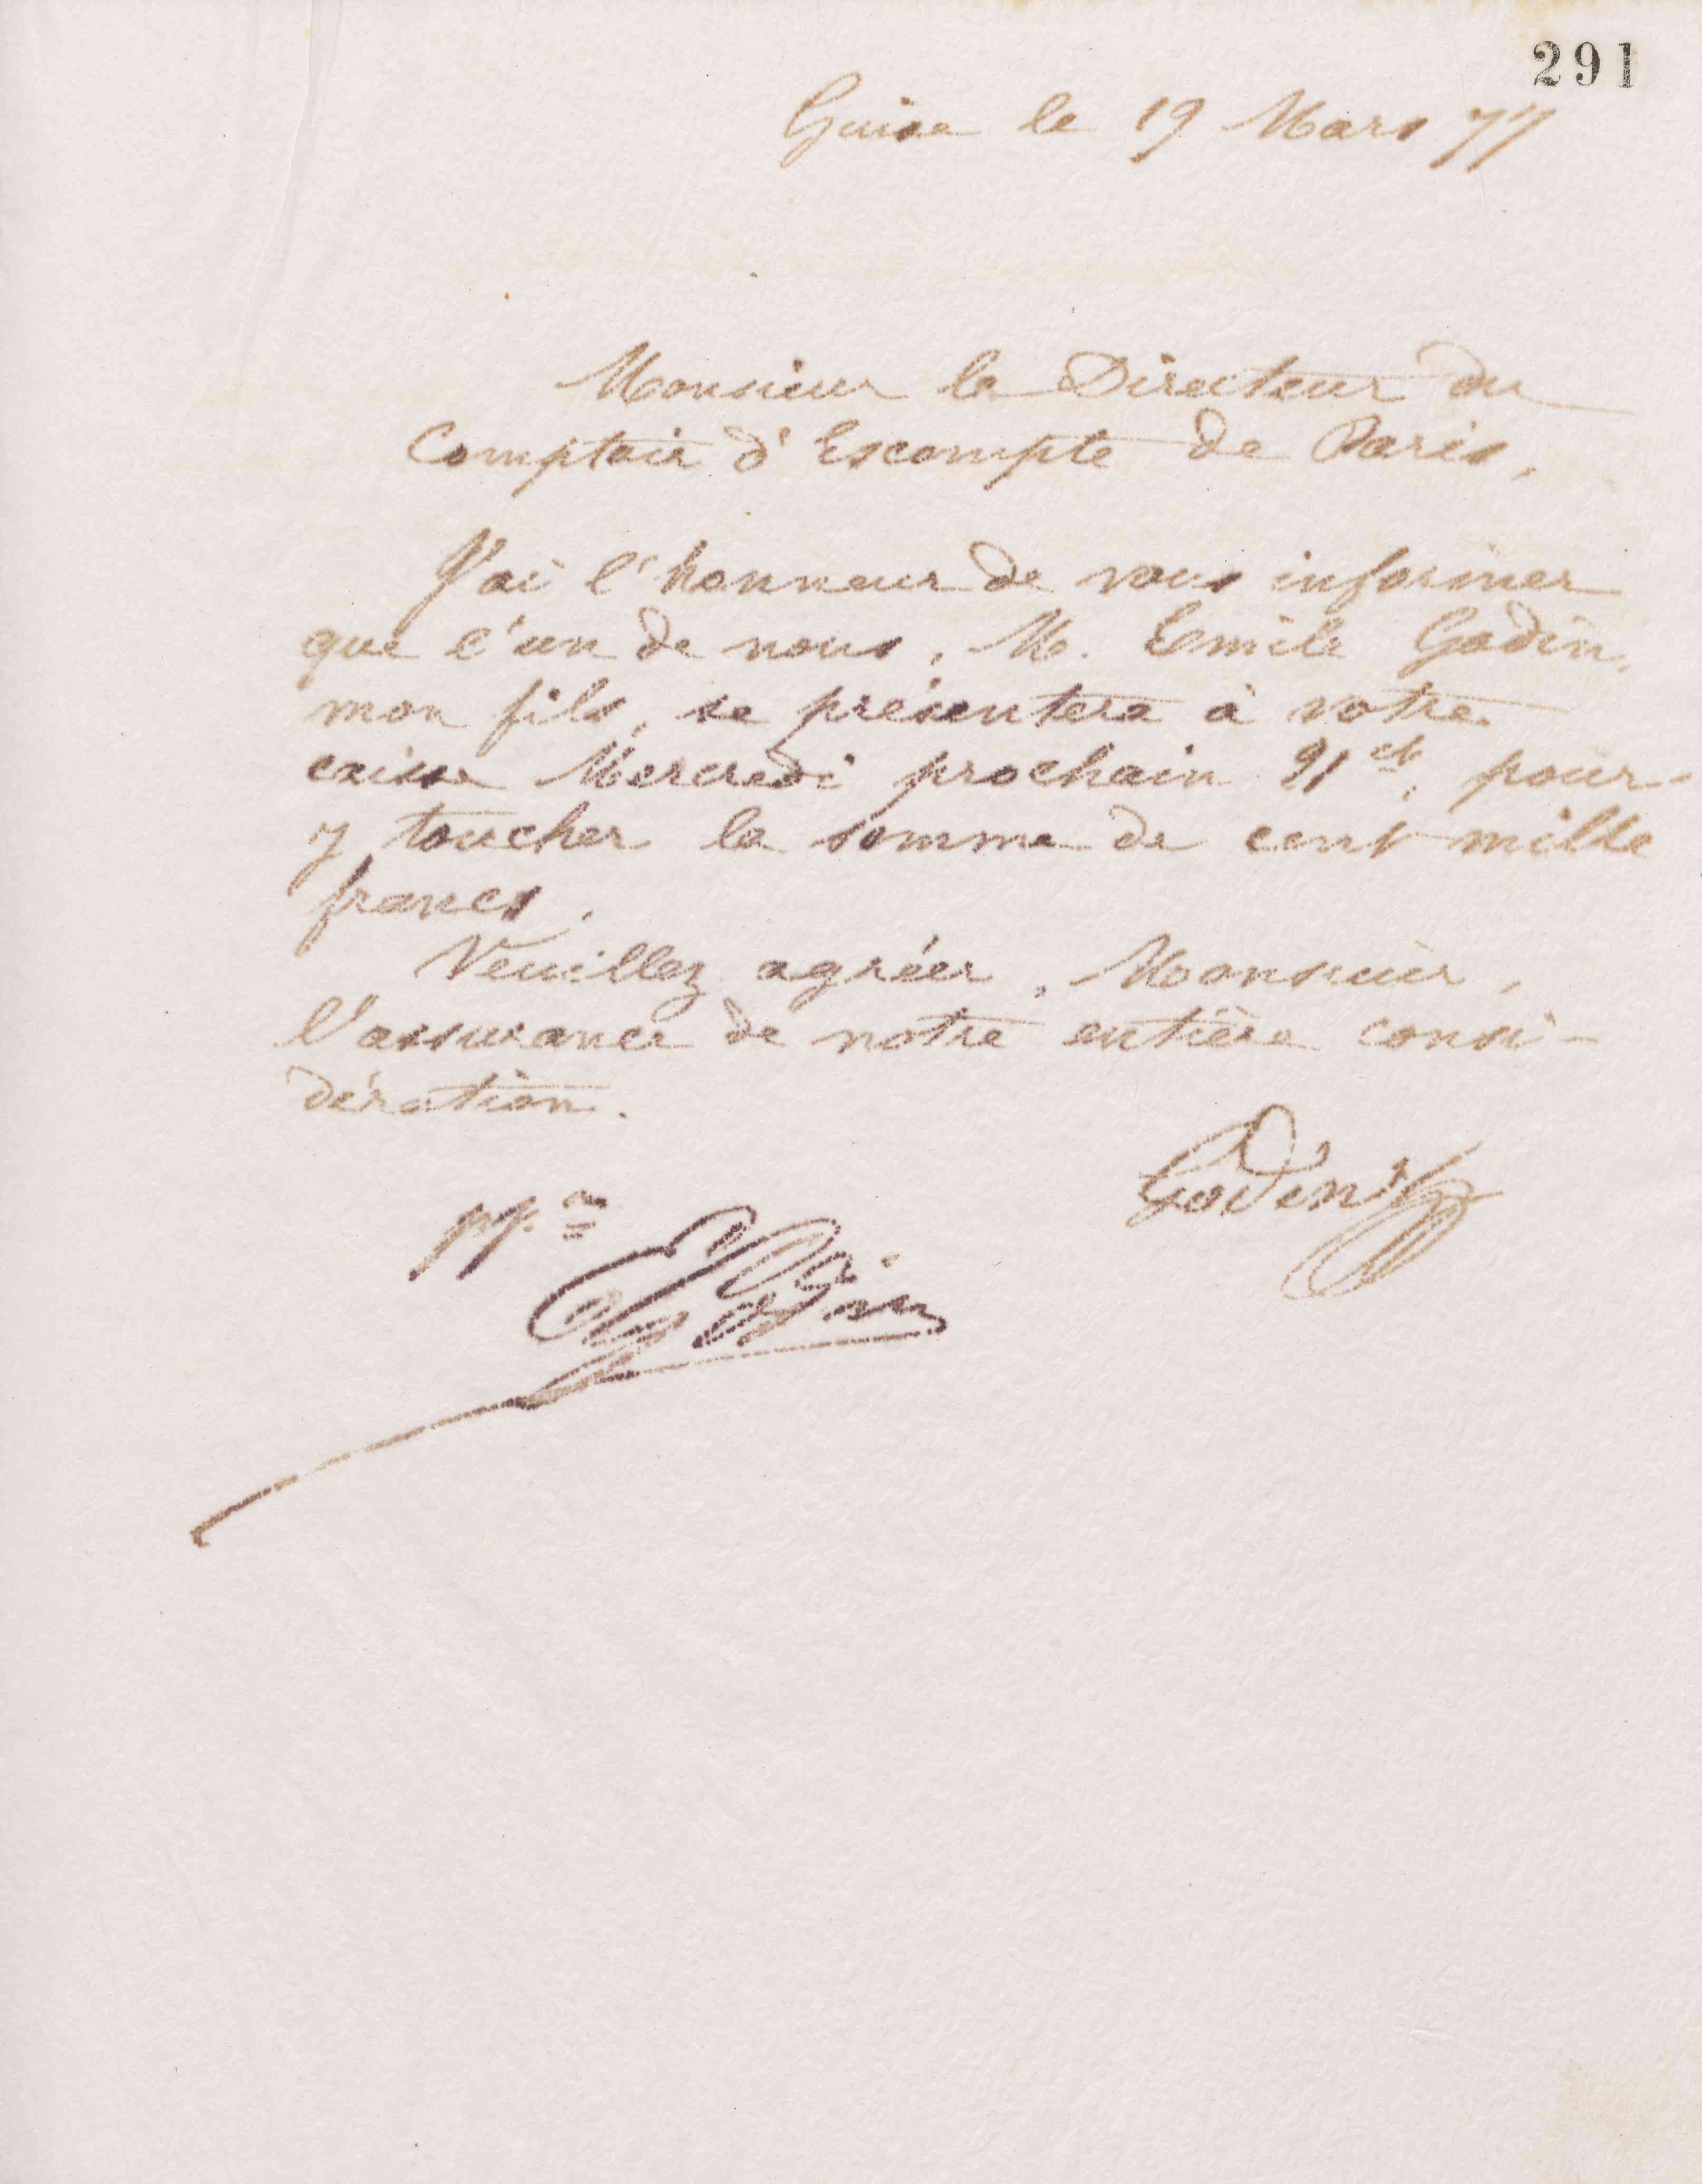 291
Guise le 19 Mars 77
Monsieur le Directeur du
Comptoir d'Escompte de Paris,
J'ai l'honneur de vous informer
que l'un de nous, M. Emile Godin,
mon fils, se présentera à votre
caisse Mercredi prochain 21 ct, pour
y toucher la somme de cent mille
francs.
Veuillez agréer, Monsieur,
l'assurance de notre entière consi-
dération.
Godin
pp.on
E Godin